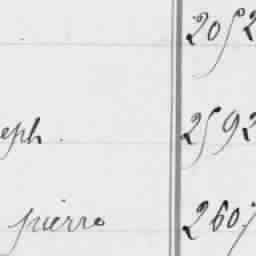 2052
eph. 2592
pierro 2607